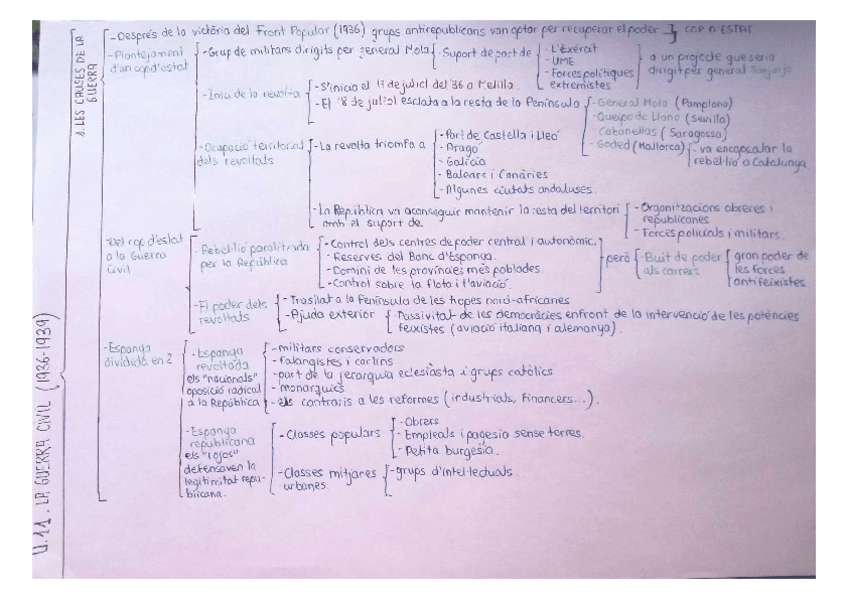 U.11. LA GUERRA CIVIL (1936-1939)
1. LES CAUSES DE LA
GUERRA
-Després de la victòria del Front Popular (1936) grups antirepublicans van optar per recuperar el poder } COP D'ESTAT
-Plantejament
d'un cop d'estat
-Grup de militars dirigits per general Mola
-Suport de part de
-L'Exèrcit
-UME
-Forces polítiques
extremistes
a un projecte que seria
dirigit per general Sanjurjo
-Inici de la revolta
-S'inicia el 17 de juliol del '36 a Melilla.
-El 18 de juliol esclata a la resta de la Península
-General Mola (Pamplona)
-Queipo de Llano (Sevilla)
-Cabanellas (Saragossa)
-Goded (Mallorca)
-va encapsalar la
rebel·lió a Catalunya
-Ocupació territorial
dels revoltats
-La revolta triomfa a
-Part de Castella i Lleó
-Aragó
-Galícia
-Balears i Canàries
-Algunes ciutats andaluses.
-La República va aconseguir mantenir la resta del territori
amb el suport de
-Organitzacions obreres i
republicanes
-Forces policials i militars.
-Del cop d'estat
a la Guerra
Civil
-Rebel·lió paralitzada
per la República
-Control dels centres de poder central i autonòmic.
-Reserves del Banc d'Espanya.
-Domini de les províncies més poblades.
-Control sobre la flota i l'aviació.
però
-Buit de poder
als carrers
gran poder de
les forces
antifeixistes.
-El poder dels
revoltats
-Trasllat a la Península de les tropes nord-africanes
-Ajuda exterior
-Passivitat de les democràcies enfront de la intervenció de les potències
feixistes (aviació italiana i alemanya).
-Espanya
dividida en 2
-Espanya
revoltada
els "nacionals"
oposició radical
a la República
-militars conservadors
-falangistes i carlins
-part de la jerarquia eclesiàsta i grups catòlics
-monàrquics
-els contraris a les reformes (industrials, financers...).
-Espanya
republicana
els "rojos"
defensaven la
legitimitat repu-
blicana.
-Classes populars
-Obrers
-Empleats i pagesia sense terres.
-Petita burgesia.
-Classes mitjanes
urbanes.
-grups d'intel·lectuals.